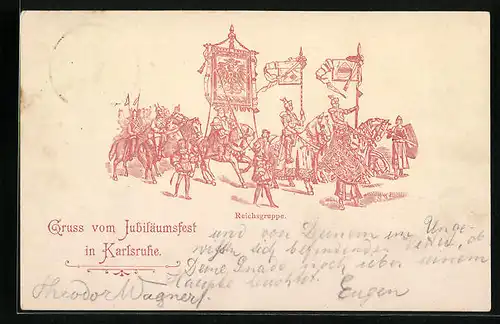 Reichsgruppe.
Gruss vom Jubiläumsfest
in Karlsruhe.
und von Deinem im Unge-
sich befindenden ob
Deine Gnade noch über meinem
Haupte leuchtet.
Theodor Wagner
Eugen